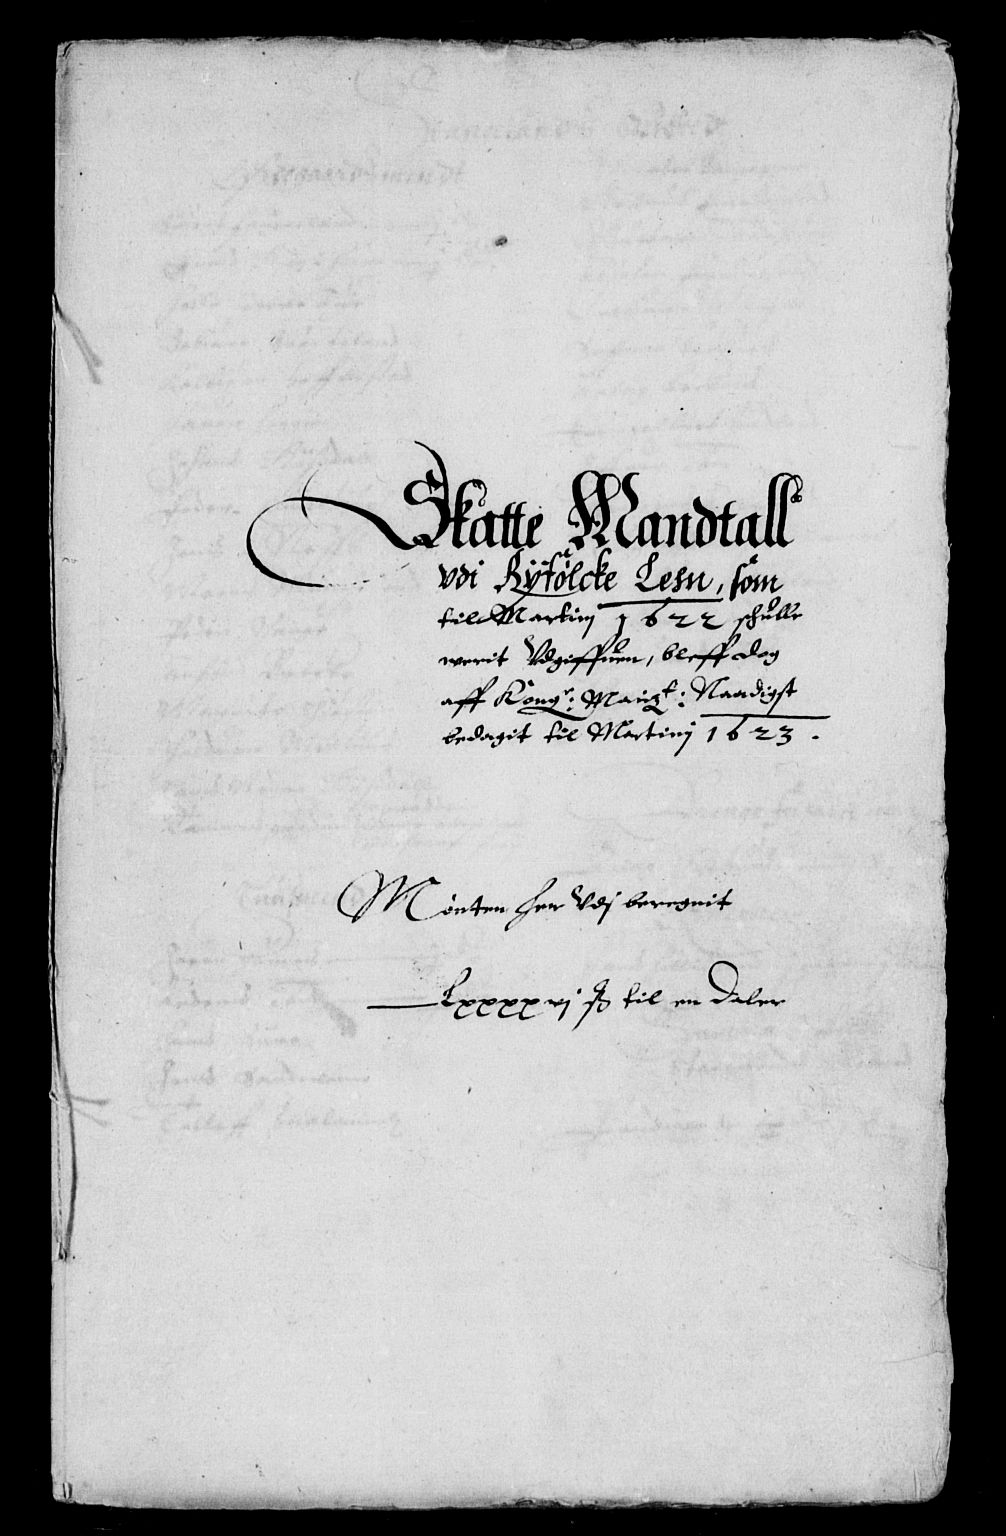 Skatte Mandtall
vdi Ryfölcke Lehn, som
til Martinj 1622 schulle
werit Vdgiffuen, bleff dog
aff Kong: Maiz:t: Naadigst
bedagit til Martinj 1623.
Mönten her Vdj beregnit
Lxxxxvj ß til en Daler